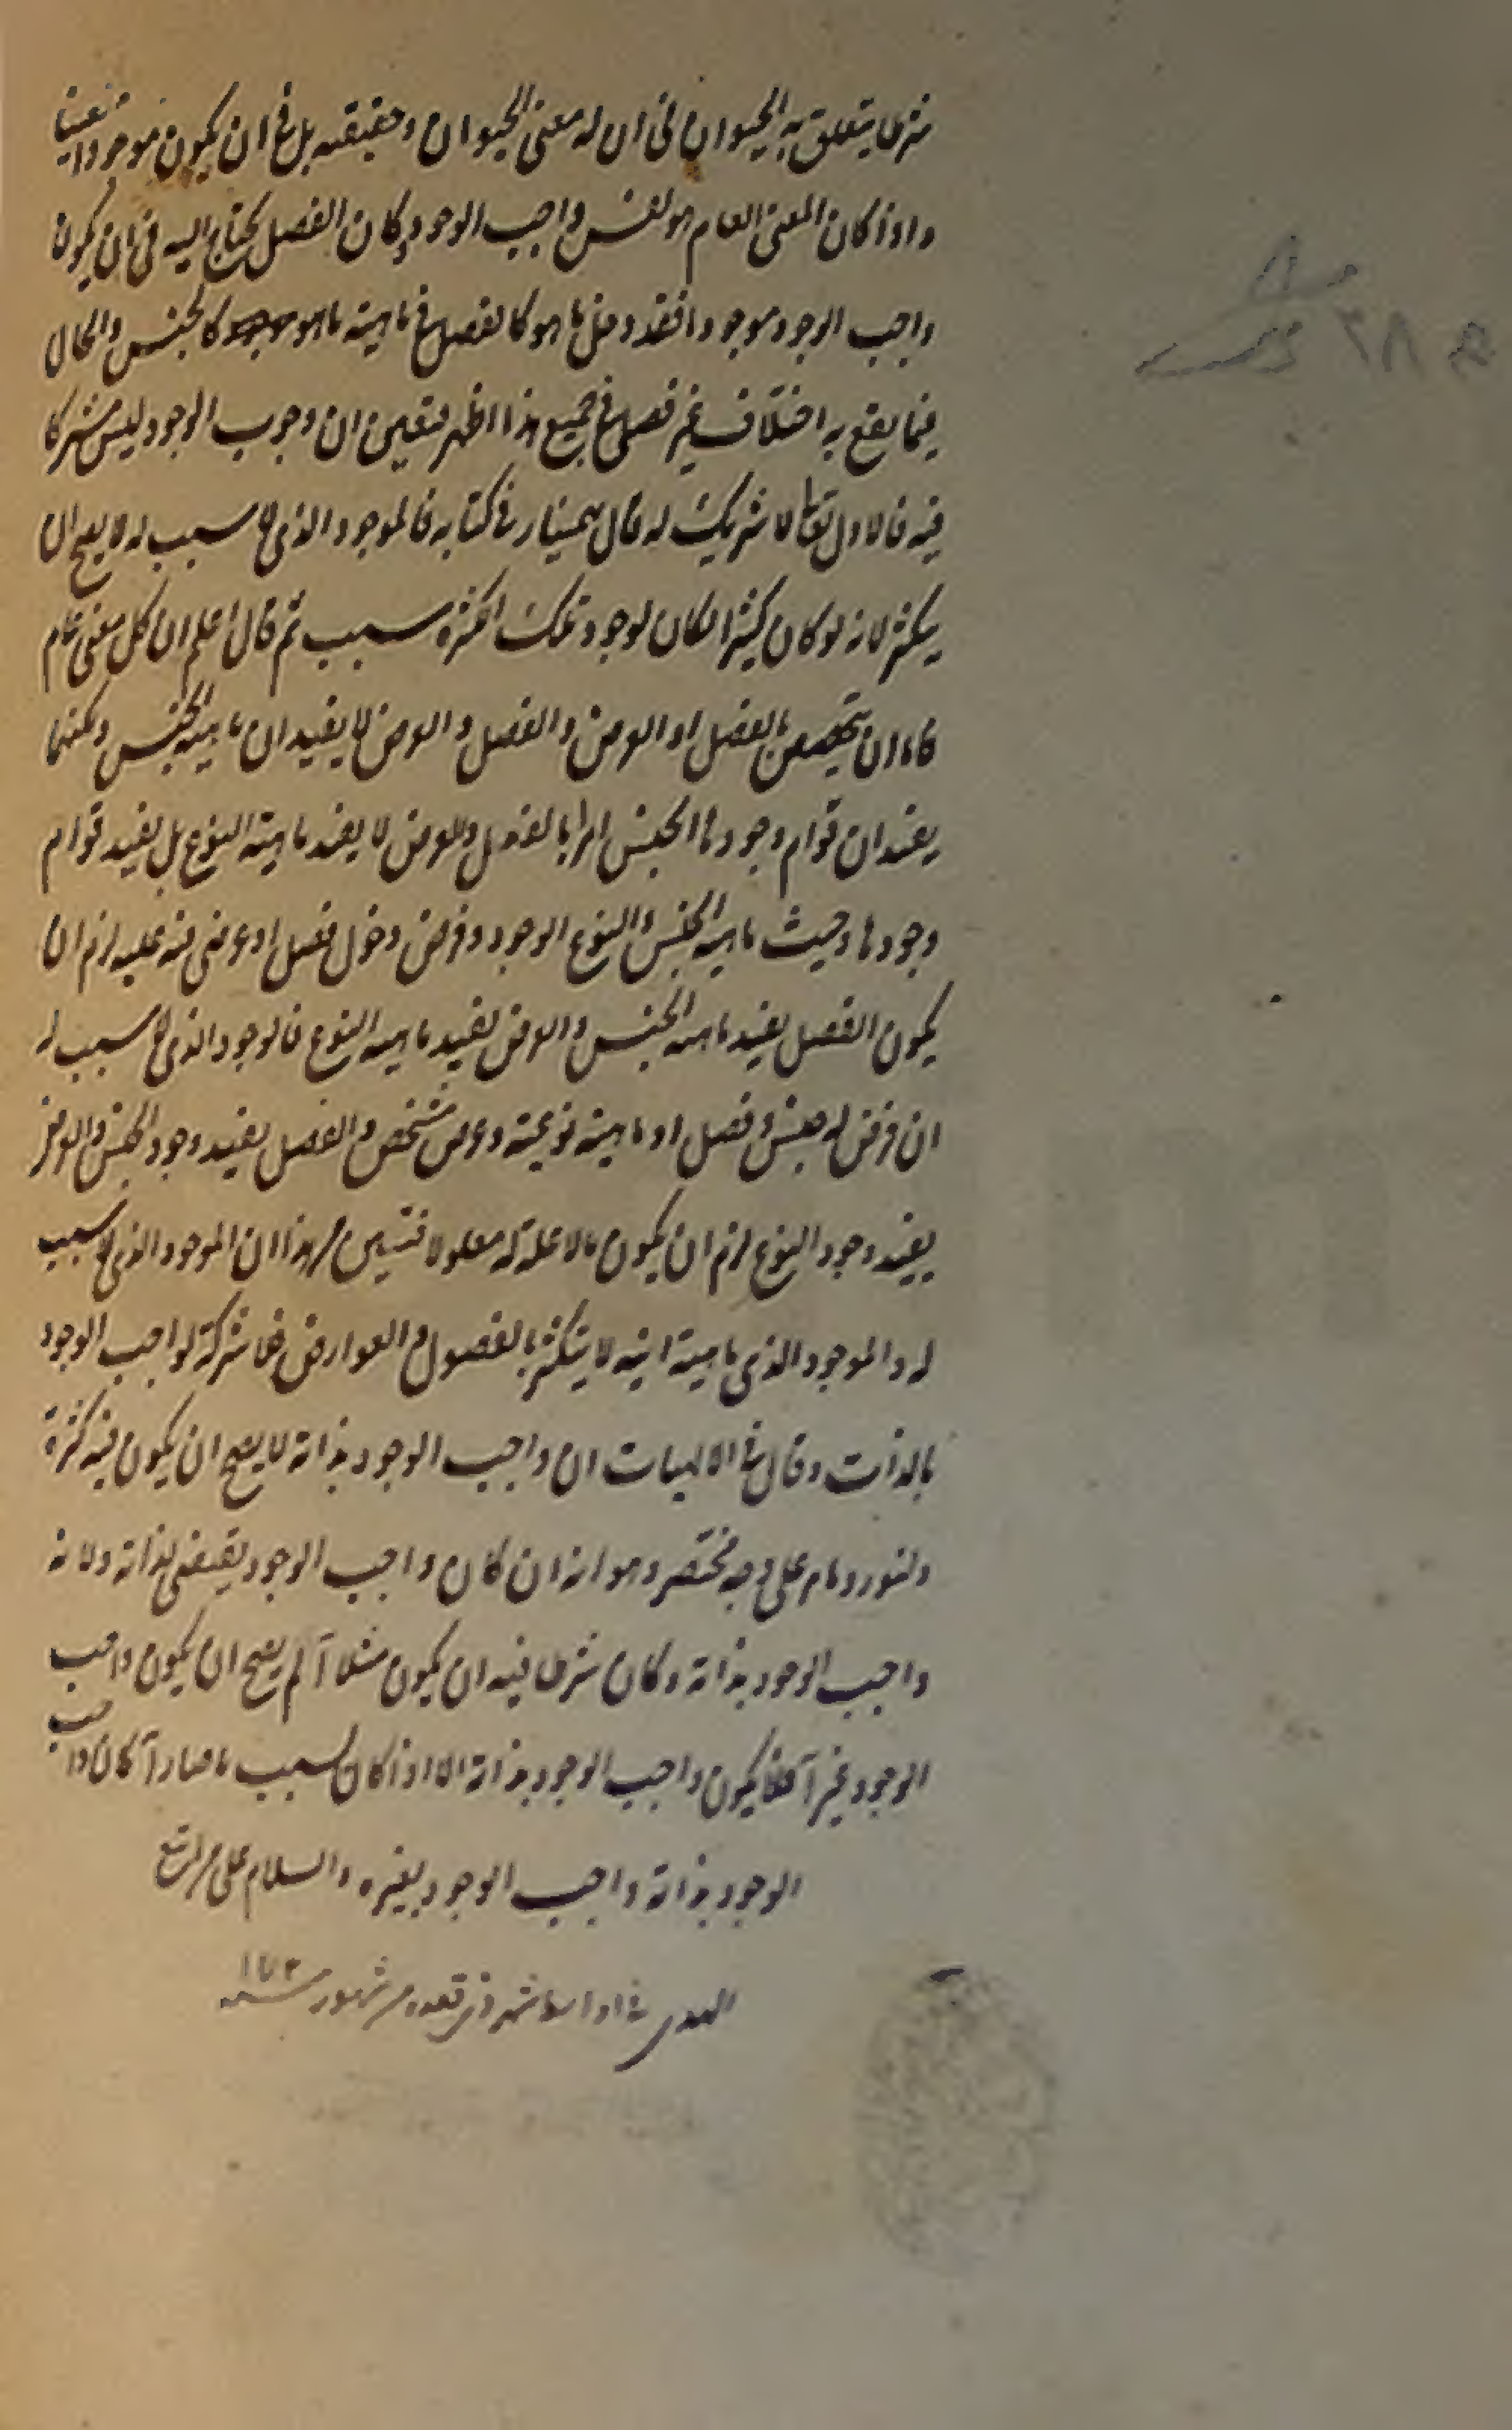 شرطا يتعلق به الحيوان في ان له معنى الحيوان وحقيقته بل في ان يكون موجودا معينا
واذا كان المعنى العام هو نفس واجب الوجود وكان الفصل يحتاج اليه في ان يكون
واجب الوجود موجودا فقد دخل ما هو كالفصل في ماهية ما هو كالجنس والحال
فيما يقع به اختلاف غير فصلي في جميع هذا اظهر فتعين ان وجوب الوجود ليس مشتركا
فيه فالاول تعالى لا شريك له قال بهمنيار في كتابه فالموجود الذي لا سبب له لا يصح ان
يتكثر لانه لو كان كثيرا لكان لوجود تلك الكثرة سبب ثم قال اعلم ان كل معنى عام
فاما ان يتخصص بالفصل او العرض والفصل والعرض لا يفيدان ماهية الجنس ولكنهما
يفيدان قوام وجودها الجنس بالفصل والعرض لا يفيد ماهية النوع بل يفيد قوام
وجودها وحيث ماهية الجنس والنوع الوجود وفرض دخول فصل او عرض فيه عليه لزم ان
يكون الفصل يفيد ماهية الجنس والعرض يفيد ماهية النوع فالوجود الذي لا سبب له
ان فرض له جنس وفصل او ماهية نوعية وعرض مشخص والفصل يفيد وجود الجنس والعرض
يفيد وجود النوع لزم ان يكون ما لا علة له معلولا فتبين من هذا ان الموجود الذي لا سبب
له والموجود الذي ماهيته انيته لا يتكثر بالفصول والعوارض فلا شركة لواجب الوجود
بالذات وقال في الالهيات ان واجب الوجود بذاته لا يصح ان يكون فيه كثرة
ولنورد على وجه مختصر وهو انه ان كان واجب الوجود يقتضي لذاته ولانه
واجب الوجود بذاته وكان شرطا فيه ان يكون مثلا آ لم يصح ان يكون واجب
الوجود غير آ فلا يكون واجب الوجود بذاته الا اذا كان لسبب ما صار آ كان واجب
الوجود بذاته واجب الوجود بغيره والسلام على من اتبع
الهدى في شهر ذي قعده من شهور سنه